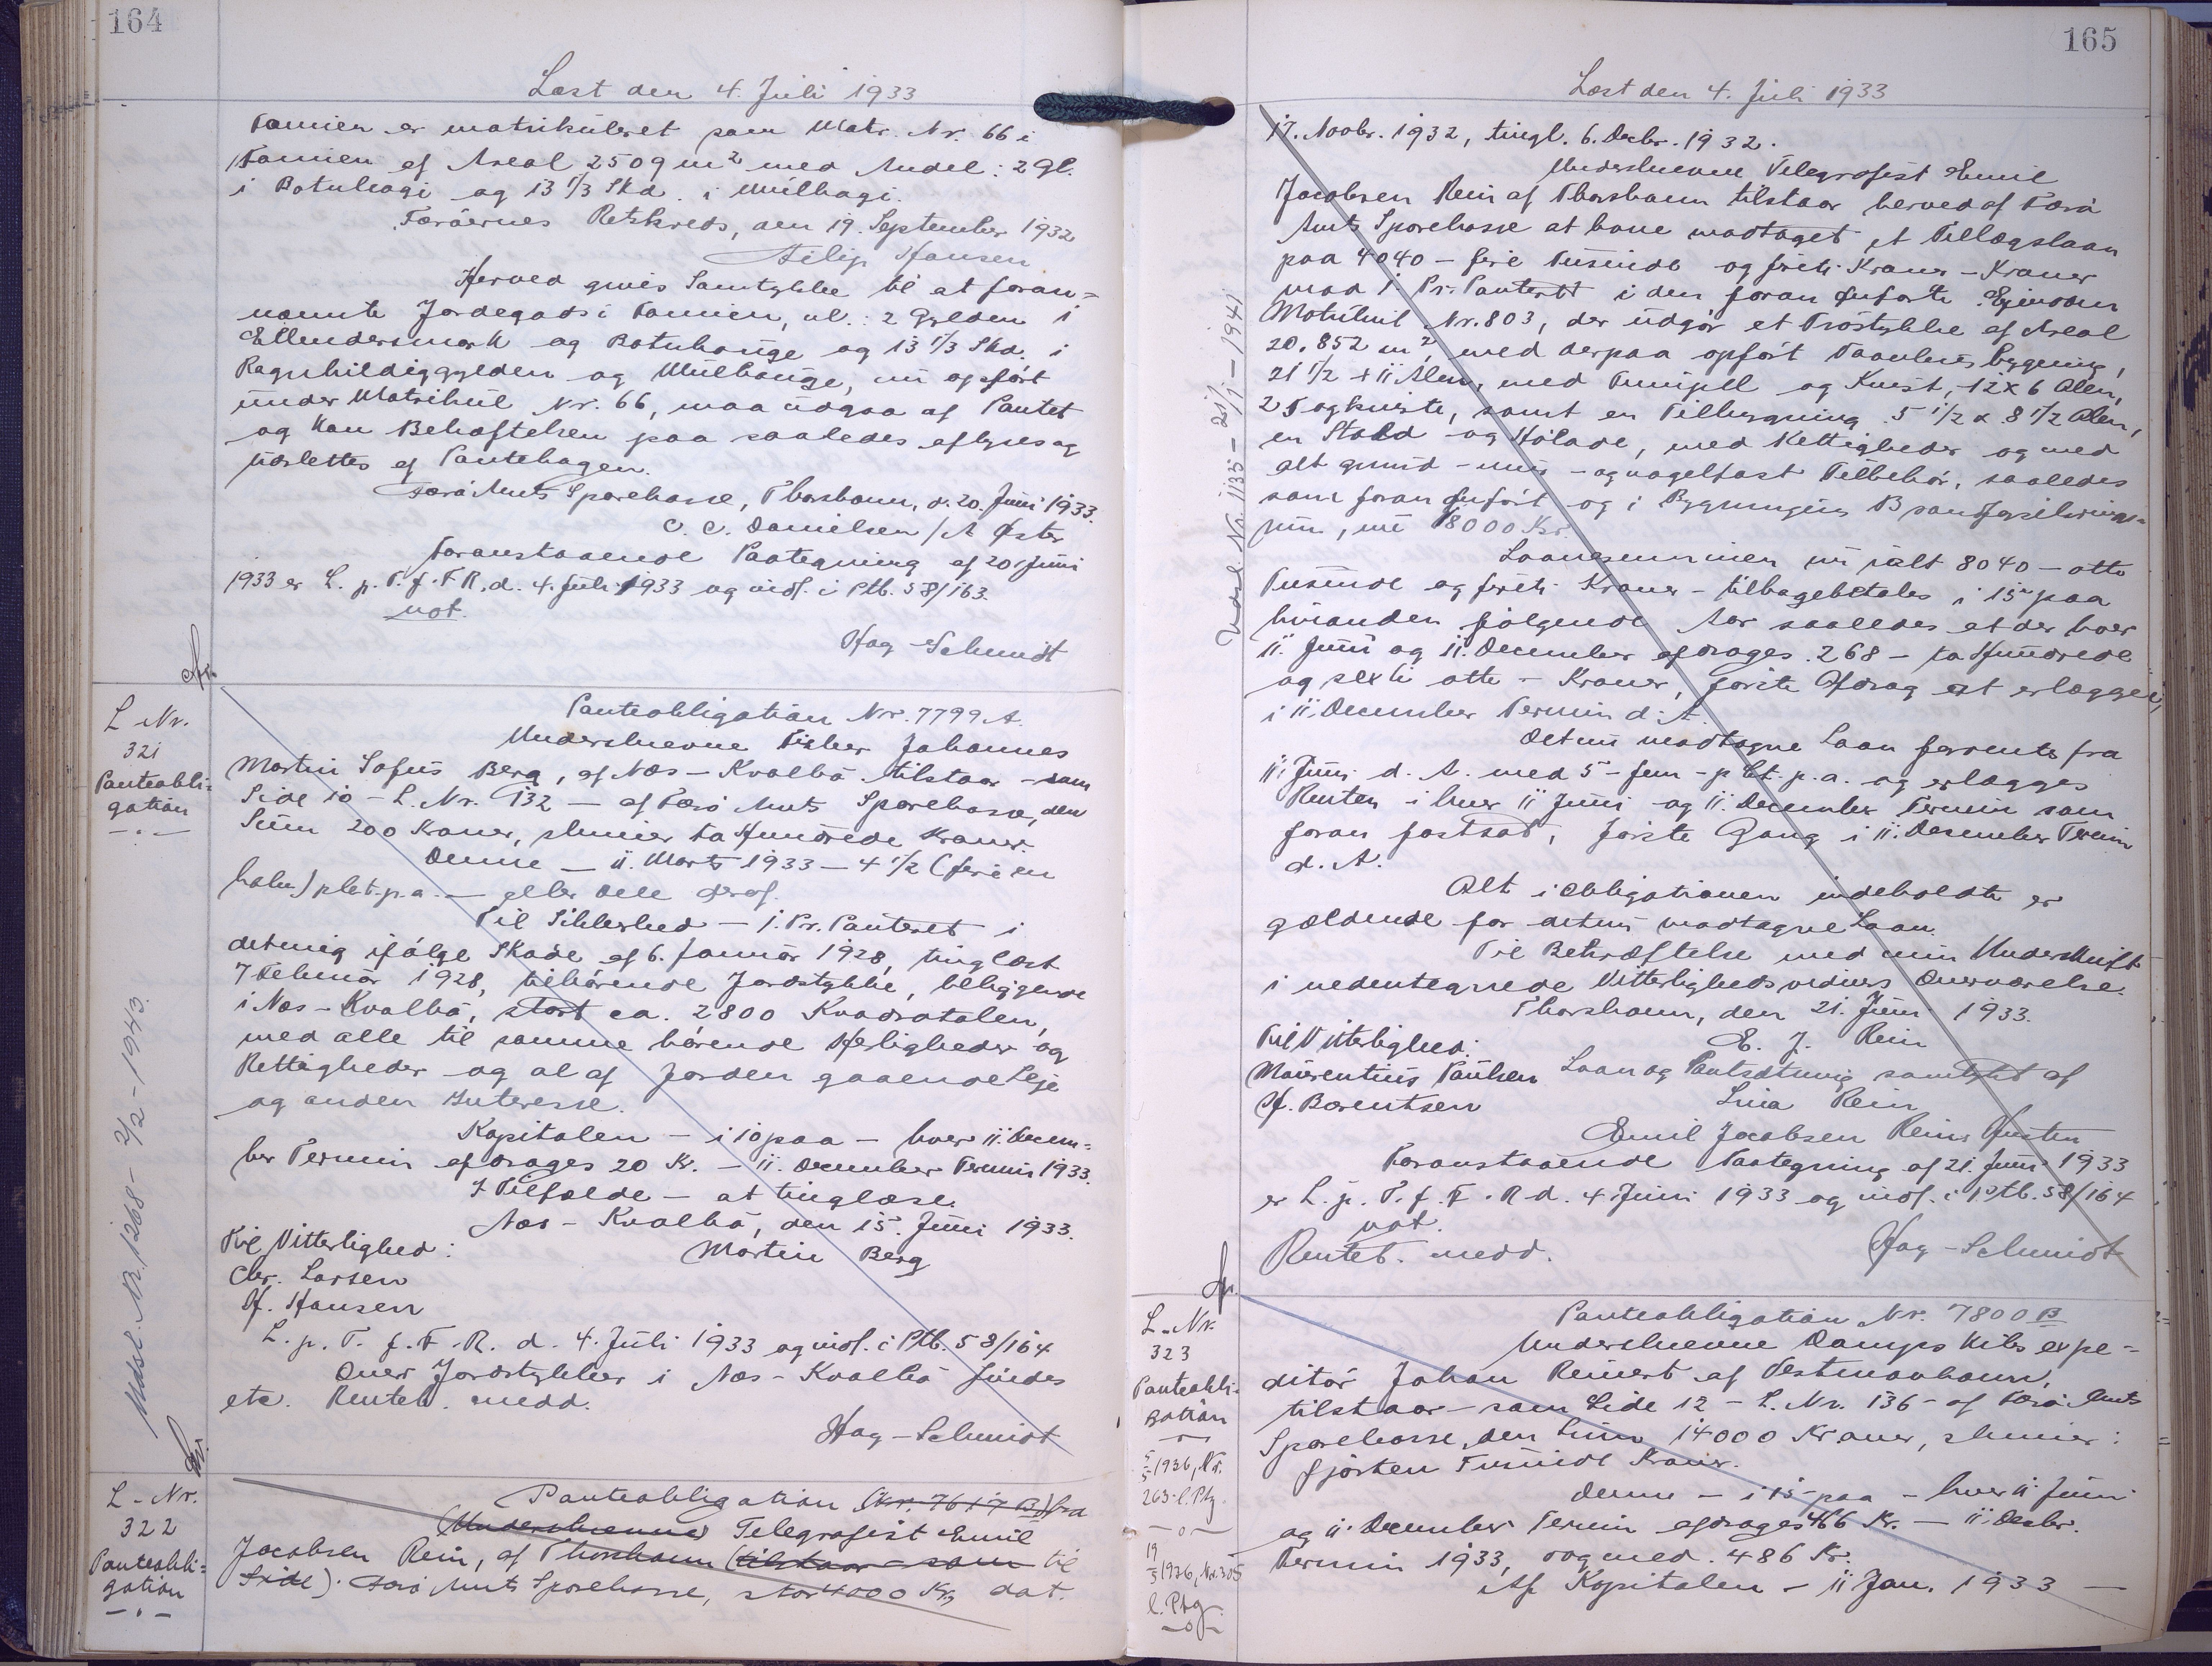 164
Læst den 4. Juli 1933
Famien er matrikuleret som Matr. Nr. 66 i
Famien af Areal 2509 m² med Andel: 2 Gl.
i Botnhagi og 13 1/3 Skd. i Múlhagi.
Færøernes Retskreds, den 19. September 1932
Filip Hansen
Herved gives Samtykke til at foran=
nævnte Jordegods i Famien, nl.: 2 Gylden i
Ellendersmørk og Botnhauge og 13 1/3 Skd. i
Ragnhildiggylden og Mülhauge, nu opført
under Matrikul Nr. 66, maa udgaa af Pantet
og kan Behæftelsen paa saaledes aflyses og
udslettes af Pantebogen.
Færø Amts Sparekasse, Thorshavn, d. 20. Juni 1933.
C. C. Danielsen / A Øster
Foranstaaende Paategning af 20 Juni
1933 er L. p. T. f. F R. d. 4. Juli 1933 og indf. i Ptb. 58/163.
not.
Hag-Schmidt
L Nr.
321
Panteobli=
gation
Udsl. Nr. 1268 - 2/2 - 1943.
Panteobligation Nr. 7799 A.
Underskrevne Fisker Johannes
Martin Sofus Berg, af Næs - Kvalbø tilstaar - som
Side 10 - L. Nr. 132 - af Færø Amts Sparekasse, den
Sum 200 Kroner, skriver to Hundrede Kroner.
Denne - 11. Marts 1933 - 4 1/2 (fire en
halv) pCt. p.a. - eller Dele deraf.
Til Sikkerhed - 1. Pr. Panteret i
det mig ifølge Skøde af 6. Januar 1928, tinglæst
7 Februar 1928, tilhørende Jordstykke, beliggende
i Næs - Kvalbø, stort ca. 2800 Kvadratalen,
med alle til samme hørende Herligheder og
Rettigheder og al af Jorden gaaende Leje
og anden Interesse.
Kapitalen - i 10 paa - hver 11. Decem=
ber Termin afdrages 20 Kr. - 11. December Termin 1933.
I Tilfælde - at tinglæse.
Næs - Kvalbø, den 15. Juni 1933.
Til Vitterlighed:
Martin Berg
Chr. Larsen
H. Hansen
L. p. T. f. F. R. d. 4. Juli 1933 og indf. i Ptb. 58/164
Over Jordstykker i Næs - Kvalbø findes
etc. Renteb. medd.
Hag-Schmidt
L - Nr.
322
Panteobli=
gation
Panteobligation (Nr. 7617 B) fra
(Underskrevne) Telegrafist Emil
Jacobsen Rein, af Thorshavn (tilstaar - som til
Side). Færø Amts Sparekasse, stor 4000 Kr., dat.
165
Læst den 4. Juli 1933
Udsl. Nr. 1135 - 21/1 - 1941
17. Novbr. 1932, tingl. 6. Decbr. 1932.
Underskrevne Telegrafist Emil
Jacobsen Rein af Thorshavn tilstaar herved af Færø
Amts Sparekasse at have modtaget et Tillægslaan
paa 4040 - fire Tusinde og fyrti Kroner - Kroner
mod 1. Pr. Panteret i den foran anførte Ejendom
Matrikul Nr. 803, der udgør et Trøstykke af Areal
20.852 m², med derpaa opført Vaanhus bygning,
21 1/2 x 11 Alen, med Tunnjell og Kvist, 12 x 6 Alen,
2 Tagkviste, samt en Tilbygning 5 1/2 x 8 1/2 Alen,
en Stald og Hølade, med Rettigheder og med
alt grund - mur - og nagelfast Tilbehør, saaledes
som foran anført og i Bygningens Brandforsikrings=
sum, nu 18000 Kr.
Laanesummen nu ialt 8040 - otte
Tusinde og fyrti Kroner - tilbagebetales i 15 paa
hinanden følgende Aar saaledes at der hver
11. Juni og 11. December afdrages 268 - to Hundrede
og seksti otte - Kroner, første Afdrag at erlægge
i 11. December Termin d. A.
Det nu modtagne Laan forrentes fra
11. Juni d. A. med 5 - fem - p Ct. p. a. og erlægges
Renten i hver 11 Juni og 11. December Termin som
foran fastsat, første Gang i 11. December Termin
d. A.
Alt i Obligationen indeholdte er
gældende for det nu modtagne Laan.
Til Bekræftelse med min Underskrift
i nedentegnede Vitterlighedsvidners Overværelse.
Thorshavn, den 21. Juni 1933.
Til Vitterlighed:
E. J. Rein
Maurentius Paulsen
Laan og Pantsætning samtykt af
H. Barentsen
Lina Rein
Emil Jacobsen Reins Hustru
Foranstaaende Paategning af 21. Juni 1933
er L. p. T. f. F. R. d. 4 Juni 1933 og indf. i Ptb. 58/164
not.
Renteb. medd.
Hag-Schmidt
L. Nr.
323
Panteobli=
gation
5/5 1936, Nr.
263 l. Ptg.
19/5 1936, Nr. 305
l. Ptg.
Panteobligation Nr. 7800 B
Underskrevne Dampskibsexpe=
ditør Johan Reinert af Vestmanhavn,
tilstaar - som Side 12 - L. Nr. 136 - af Færø Amts
Sparekasse, den Sum 14000 Kroner, skriver:
fjorten Tusinde Kroner.
Denne - i 15 paa - hver 11 Juni
og 11. December Termin afdrages 466 Kr. - 11. Decbr.
Termin 1933, dog med 486 Kr.
Af Kapitalen - 11 Jan. 1933 -